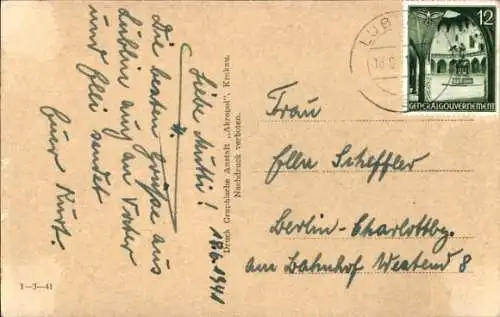 Liebe Mutti!
18.6.1941
Die besten Grüße aus
Lublin auch an Vater
und Elli sendet
Euer Kurt.
Druck Graphische Anstalt „Akropol", Krakau.
Nachdruck verboten.
1—3—41
LUB
12
GENERALGOUVERNEMENT
Frau
Ella Scheffler
Berlin-Charlottbg.
am Bahnhof Westend 8